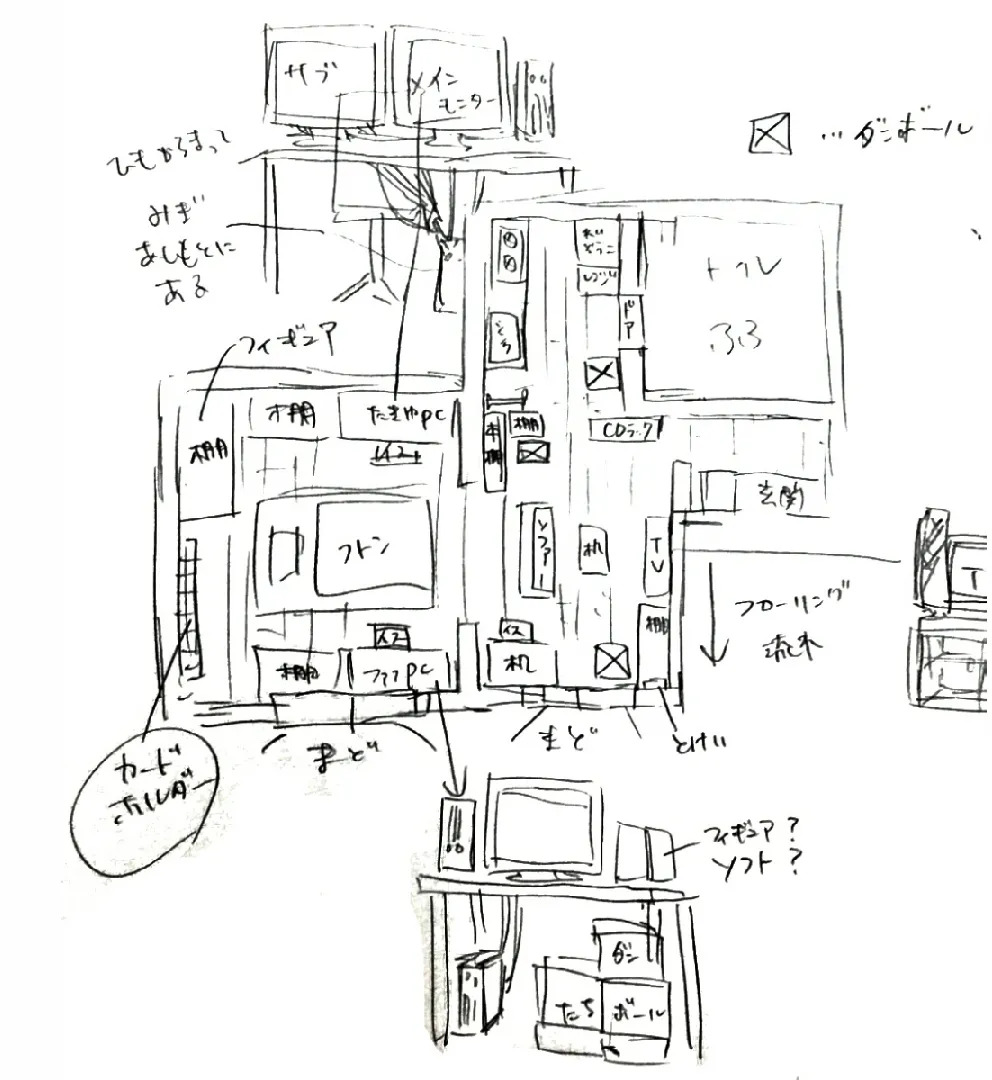 サブ
メイン
モニター
ひもからまって
みぎ
あしもとに
ある
…ダンボール
れい
ぞうこ
レンジ
ドア
トイレ
ふろ
フィギュア
棚
本棚
たまやPC
イス
本棚
棚
CDラック
玄関
フトン
ソファー
机
TV
棚
フローリング
流れ
イス
本棚
PC
イス
机
まど
まど
とけい
カード
ホルダー
T
フィギュア？
ソフト？
ダン
たち
ボール